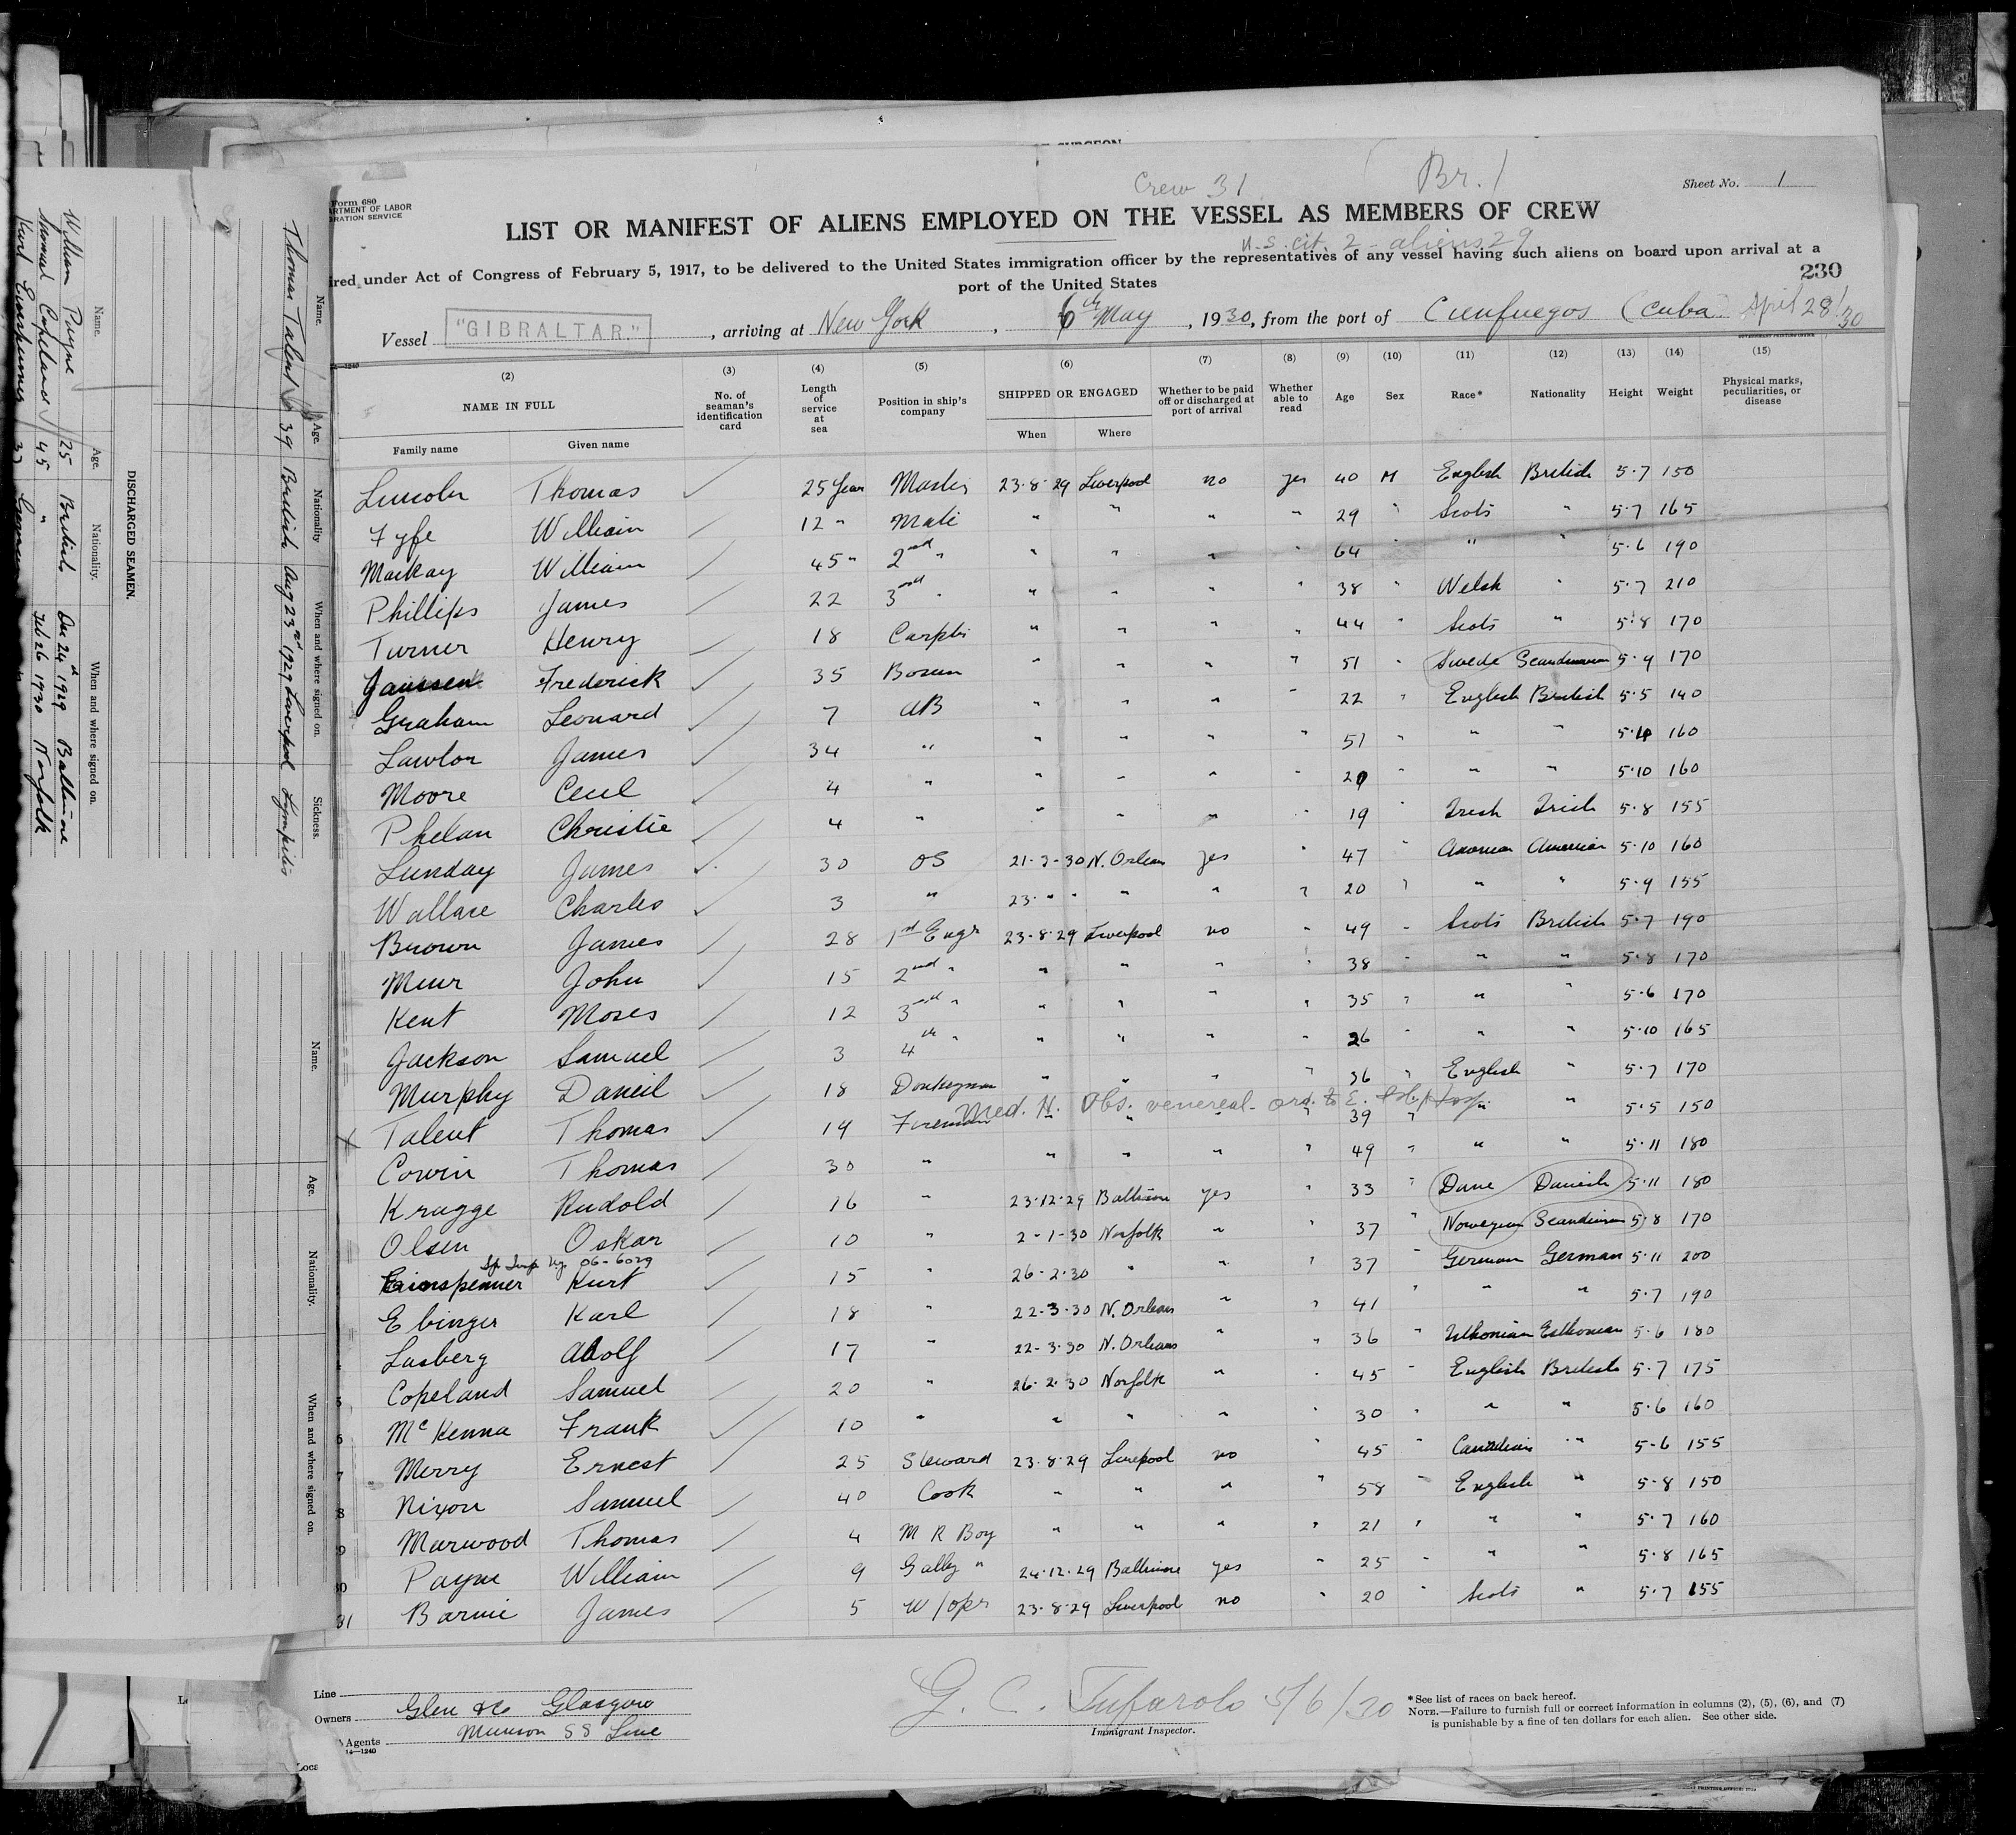 Crew 31
Br.
Sheet No. 1
Form 680
LIST OR MANIFEST OF ALIENS EMPLOYED ON THE VESSEL AS MEMBERS OF CREW
U.S. cit. 2 - aliens 29
ired under Act of Congress of February 5, 1917, to be delivered to the United States immigration officer by the representatives of any vessel having such aliens on board upon arrival at a
port of the United States
230
Vessel "GIBRALTAR." , arriving at New York , 6th May , 1930, from the port of Cienfuegos (Cuba April 28/30
(2) (3) (4) (5) (6) (7) (8) (9) (10) (11) (12) (13) (14) (15)
NAME IN FULL No. of seaman's identification card Length of service at sea Position in ship's company SHIPPED OR ENGAGED Whether to be paid off or discharged at port of arrival Whether able to read Age Sex Race* Nationality Height Weight Physical marks, peculiarities, or disease
Family name Given name When Where
Lincoln Thomas 25 Year Master 23-8-29 Liverpool no yes 40 M English British 5-7 150
Fyfe William 12 " Mate " " " " 29 " Scots " 5-7 165
Mackay William 45 " 2nd " " " " " 64 " " " 5-6 190
Phillips James 22 3rd " " " " " 38 " Welsh " 5-7 210
Turner Henry 18 " " " " 44 " Scots " 5-8 170
Janssen Frederick 35 Bosun " " " " 51 " Swede Scandinavian 5-9 170
Graham Leonard 7 AB " " " " 22 " English British 5-5 140
Lawlor James 34 " " " " " 51 " " " 5-4 160
Moore Cecil 4 " " " " " 20 " " " 5-10 160
Phelan Christie 4 " " " " " 19 " Irish Irish 5-8 155
Lunday James 30 OS 21-3-30 N. Orleans yes " 47 " American American 5-10 160
Wallace Charles 3 " 23 " " " " " 20 " " " 5-9 155
Brown James 28 1st Engr 23-8-29 Liverpool no " 49 " Scots British 5-7 190
Muir John 15 2nd " " " " " 38 " " " 5-8 170
Kent Moses 12 3rd " " " " " 35 " " " 5-6 170
Jackson Samuel 3 4th " " " " " 26 " " " 5-10 165
Murphy Daneil 18 Donkeyman " " " " 36 " English " 5-7 170
Med. H. Obs. venereal
x Talent Thomas 14 Fireman " " " " 39 " " " 5-5 150
Corvin Thomas 30 " " " " " 49 " " " 5-11 180
Kragge Rudold 16 " 23-12-29 Baltimore yes " 33 " Dane Danish 5-11 180
Olsen Oskar 10 " 2-1-30 Norfolk " " 37 " Norwegian Scandinavian 5-8 170
06-6029
Kurt 15 " 26-2-30 " " 37 " German German 5-11 200
Ebinger Karl 18 " 22-3-30 N. Orleans " " 41 " " " 5-7 190
Lasberg Adolf 17 " 22-3-30 N. Orleans " " 36 " Esthonian Esthonian 5-6 180
Copeland Samuel 20 " 26-2-30 Norfolk " " 45 " English British 5-7 175
McKenna Frank 10 " " " " " 30 " " " 5-6 160
Merry Ernest 25 Steward 23-8-29 Liverpool no " 45 " Canadian " 5-6 155
Nixon Samuel 40 Cook " " " " 58 " English " 5-8 150
Marwood Thomas 4 M R Boy " " " " 21 " " " 5-7 160
Payne William 9 Gally " 24-12-29 Baltimore yes " 25 " " " 5-8 165
31 Barnie James 5 W/opr 23-8-29 Liverpool no " 20 " Scots " 5-7 155
Line
Owners Glen &Co Glasgow
Agents Munson SS Line
14-1240
G. C. Tufarolo 5/6/30
Immigrant Inspector.
*See list of races on back hereof.
NOTE.—Failure to furnish full or correct information in columns (2), (5), (6), and (7)
is punishable by a fine of ten dollars for each alien. See other side.
DISCHARGED SEAMEN.
Name. Age. Nationality. When and where signed on.
William Payne 25 British Dec 24th 1929 Baltimore
Samuel Copeland 45 " Feb 26 1930 Norfolk
Name. Age. Nationality When and where signed on. Sickness.
Thomas Talent 39 British Aug 23rd 1929 Liverpool
Name. Age. Nationality. When and where signed on.